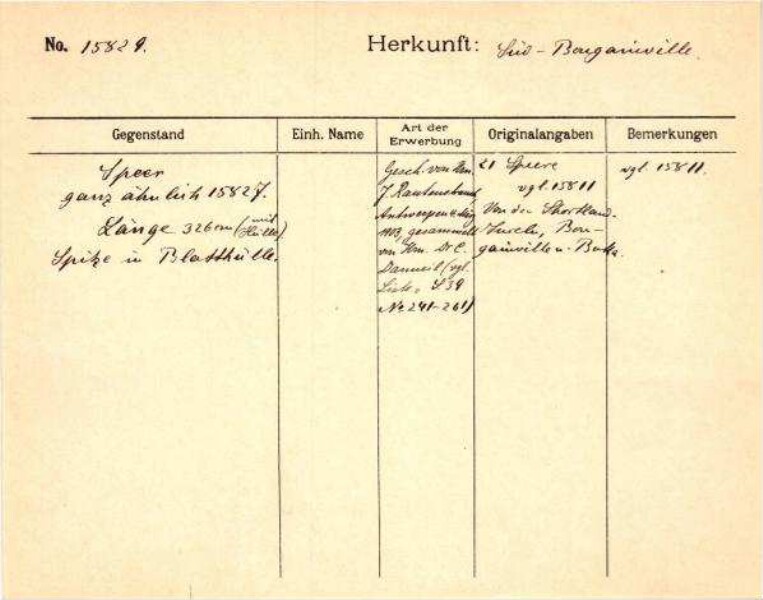 No. 15829.
Herkunft: Süd-Bougainville.
Gegenstand
Einh. Name
Art der Erwerbung
Originalangaben
Bemerkungen
Speer
ganz ähnlich 15827.
Länge 326 cm (mit Hülle).
Spitze in Blatthülle.
Gesch. von Hrn.
J. Rautenstrauch,
Antwerpen
1903, gesammelt
von Hrn. Dr C.
Danneil (vgl.
Liste, S 39
No 241-261)
21 Speere
vgl. 15811
Von den Shortland-
Inseln, Bou-
gainville u. Buka.
vgl. 15811.